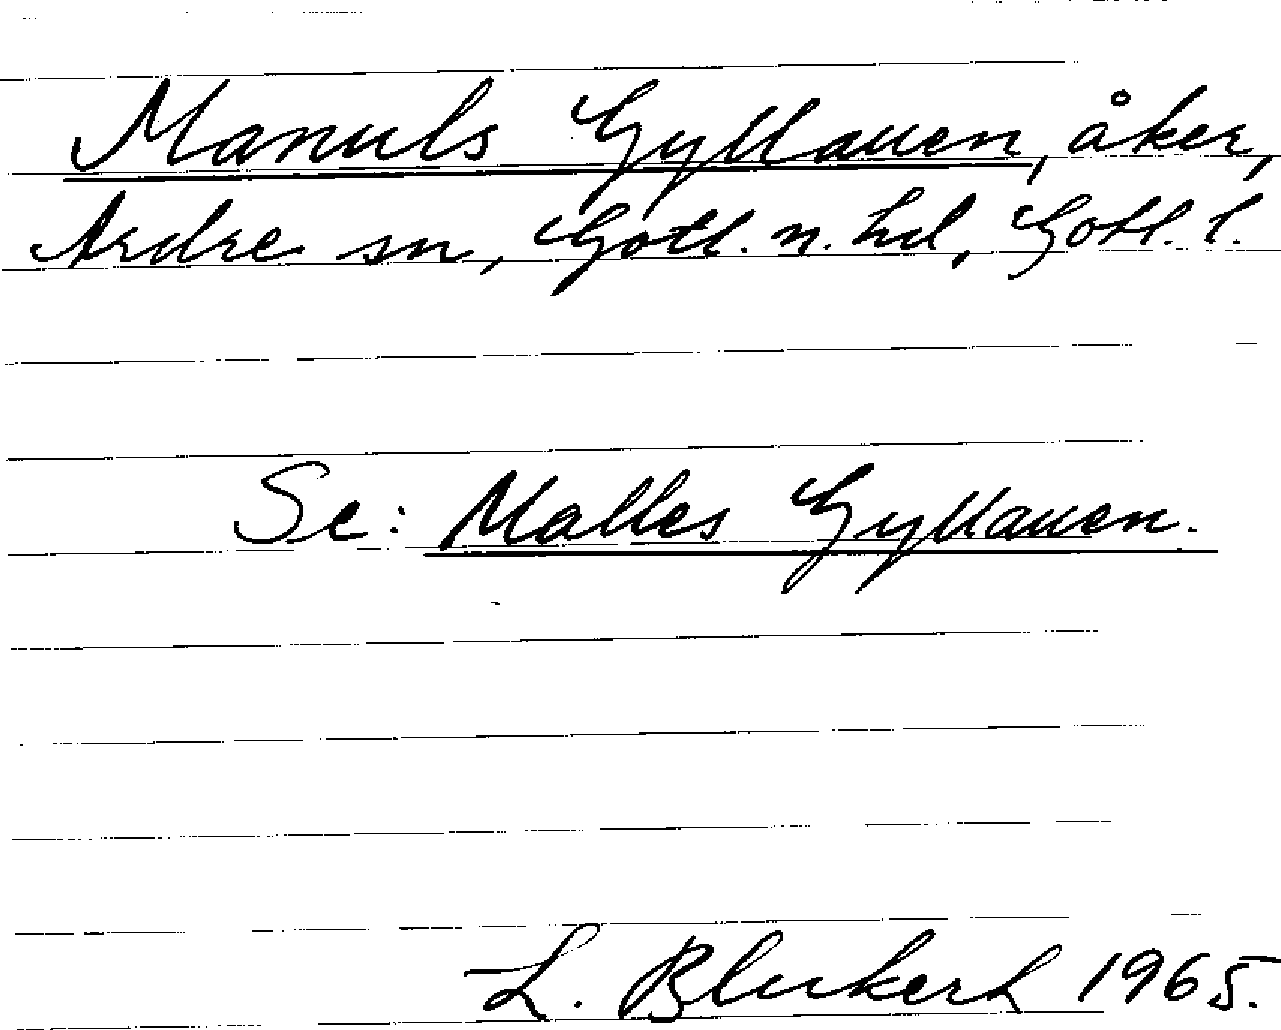 Manuls Gyllauen, åker,
Ardre sn, Gotl. n. hd, Gotl. l.
Se: Malles Gyllauen.
L. Blukert 1965.